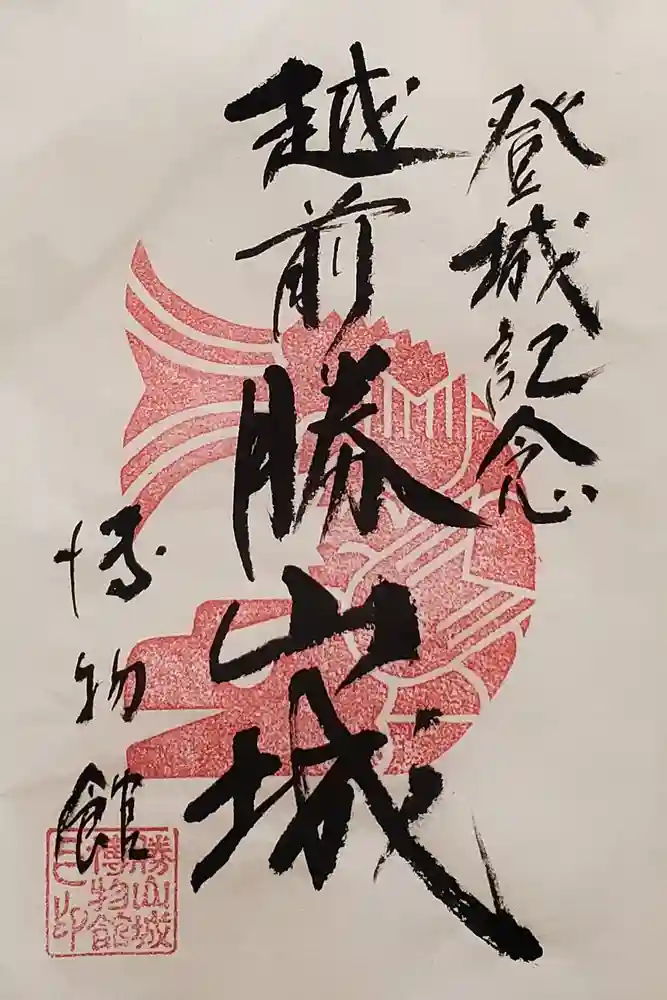 登城記念
越前勝山城
博物館
勝山城
博物館
之印